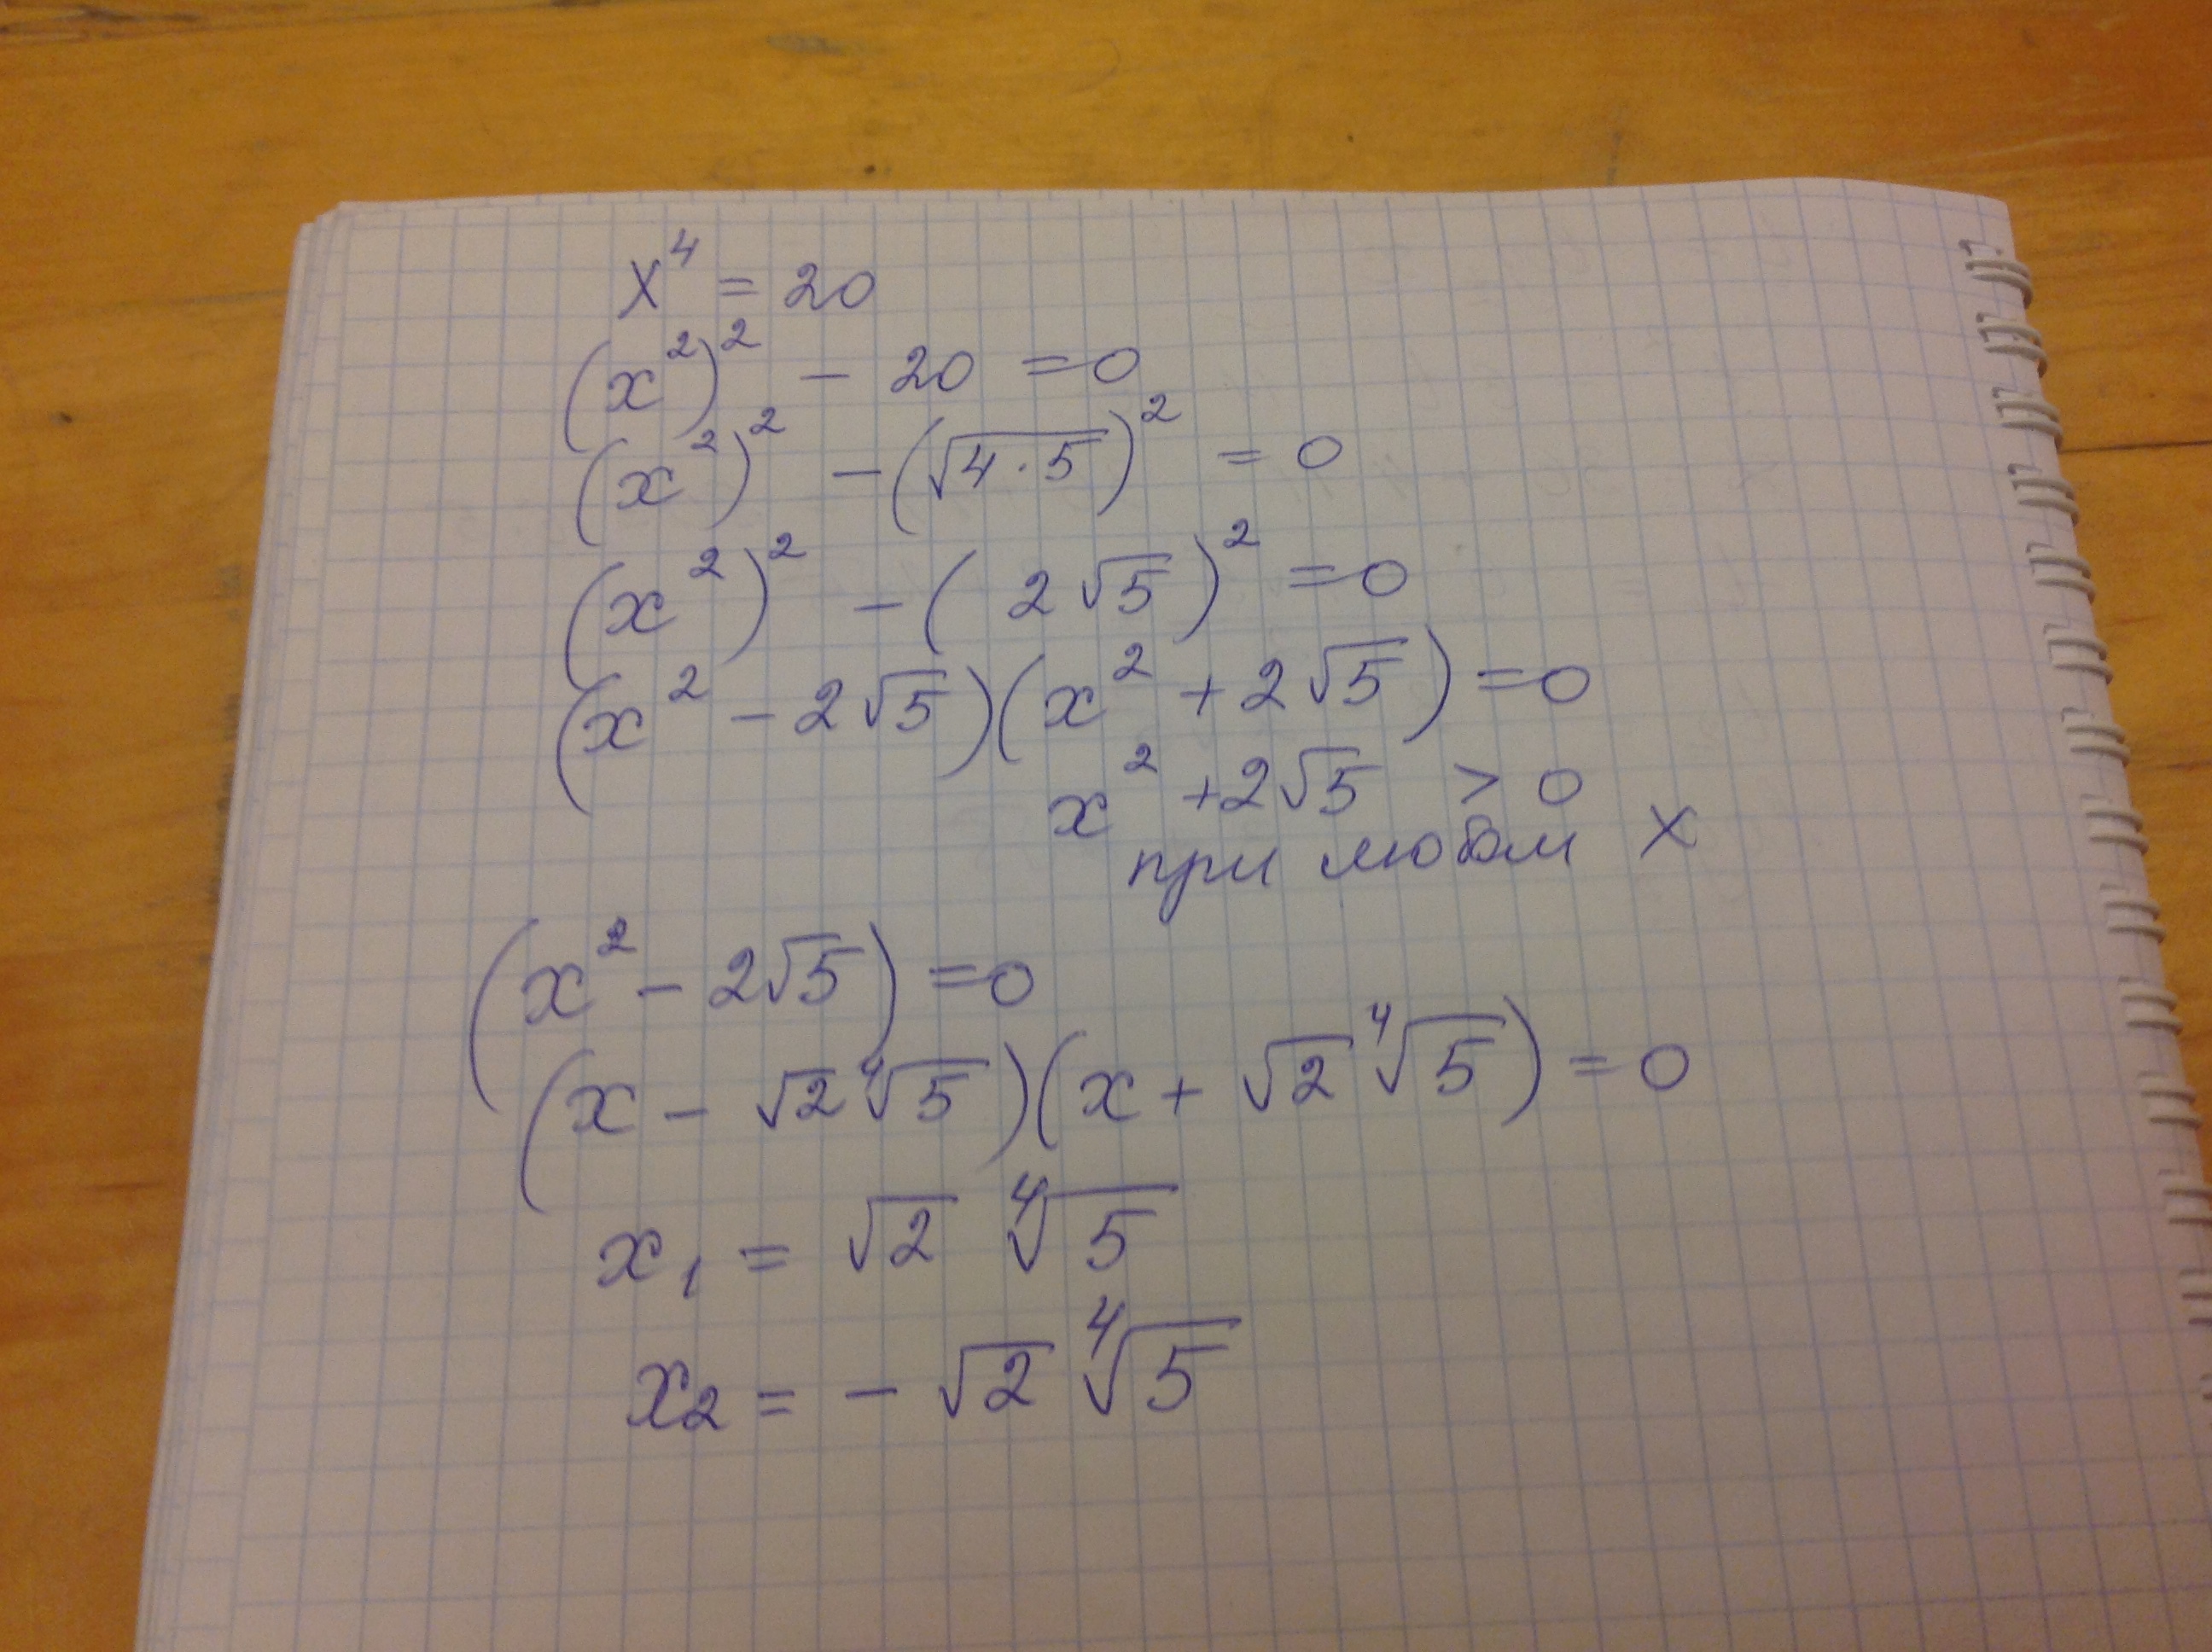 x⁴ = 20
(x²)² - 20 = 0
(x²)² - (√4·5)² = 0
(x²)² - (2√5)² = 0
(x² - 2√5)(x² + 2√5) = 0
x² + 2√5 > 0
при любом x
(x² - 2√5) = 0
(x - √2 ⁴√5)(x + √2 ⁴√5) = 0
x₁ = √2 ⁴√5
x₂ = - √2 ⁴√5